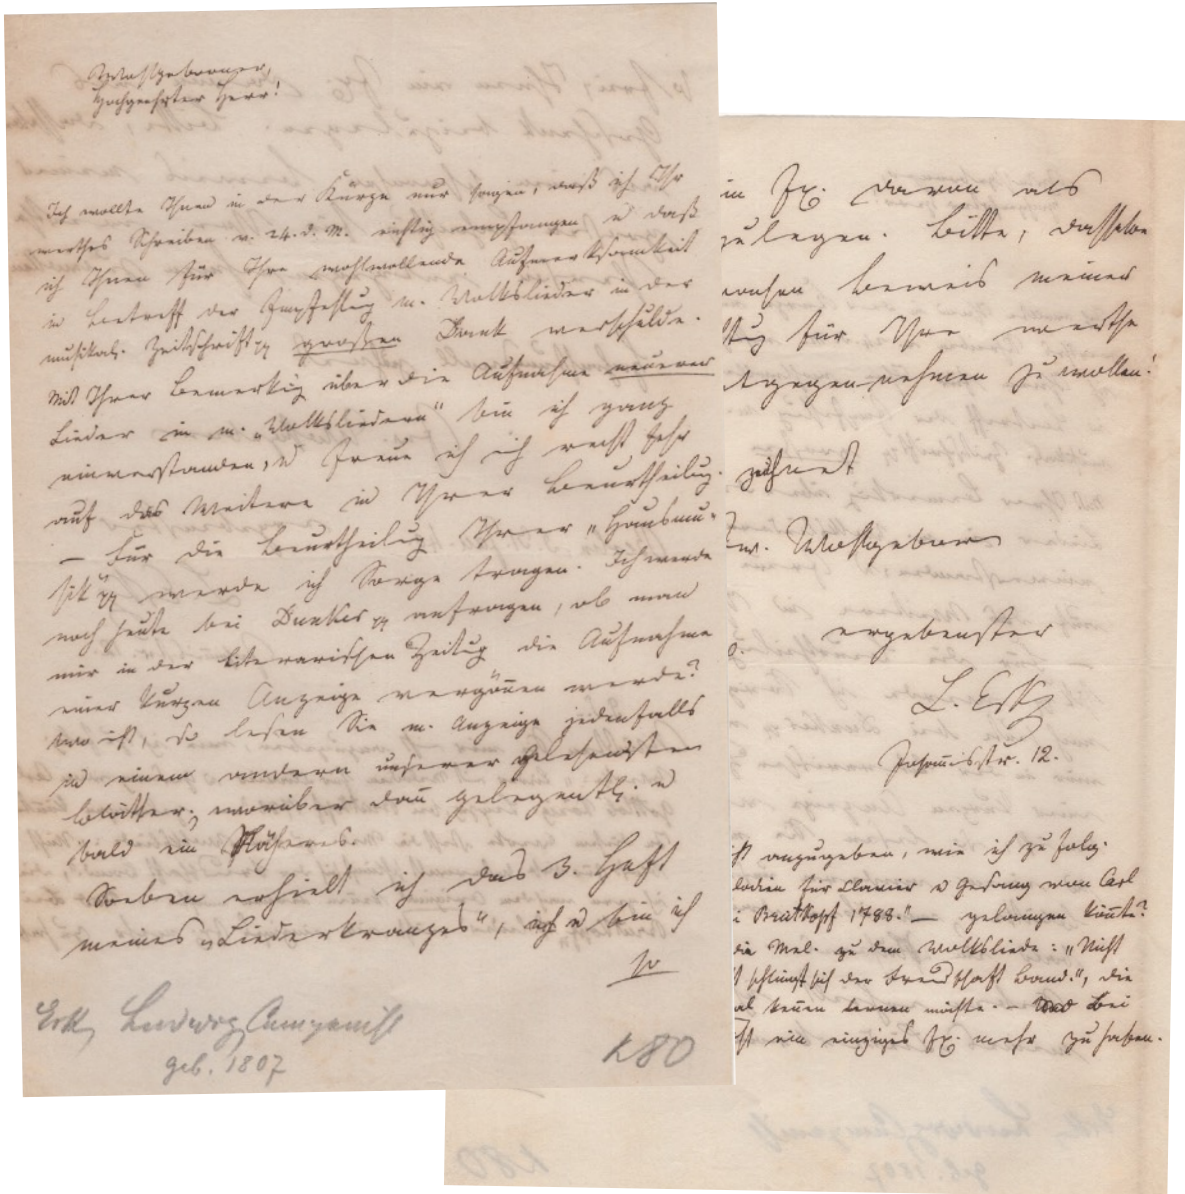 Wohlgeborner,
Hochgeehrter Herr!
Ich wollte Ihnen in der Kürze nur sagen, daß ich Ihr
werthes Schreiben v. 24. d. M. richtig empfangen u daß
ich Ihnen für Ihre wohlwollende Aufmerksamkeit
in Betreff der Empfehlug m. Volkslieder in der
musikal. Zeitschrift pp großen Dank verschulde.
Mit Ihrer Bemerkug über die Aufnahme neuerer
Lieder in m. „Volksliedern“ bin ich ganz
einverstanden, u freue ich ich recht sehr
auf das Weitere in Ihrer Beurtheilug.
— Für die Beurtheilug Ihrer „Hausmu-
sik“ pp werde ich Sorge tragen. Ich werde
noch heute bei Dunker pp anfragen, ob man
mir in der literarischen Zeitug die Aufnahme
einer kurzen Anzeige vergönnen werde?
Wo nicht, so lesen Sie m. Anzeige jedenfalls
in einem andern unserer gelesensten
Blätter; worüber dann gelegentl. u
bald ein Näheres.
Soeben erhielt ich das 3. Heft
meines „Liederkranzes“, u bin ich
so
Erk, Ludwig Componist
geb. 1807
K80
in Ex. davon als
zulegen. Bitte, dasselbe
Beweis meiner
für Ihre werthe
entgegennehmen zu wollen!
zeichnet
Ew. Wohlgeboren
ergebenster
L. Erk
Johannisstr. 12.
anzugeben, wie ich zu folg.
lodien für Clavier u Gesang von Carl
i Breitkopf 1788.“ — gelangen könnte?
die Mel. zu dem Volksliede: „Nicht
schlingt sich der Freundschaft Band.“, die
al kennen lernen möchte. — Bei
ist ein einziges Ex. mehr zu haben.